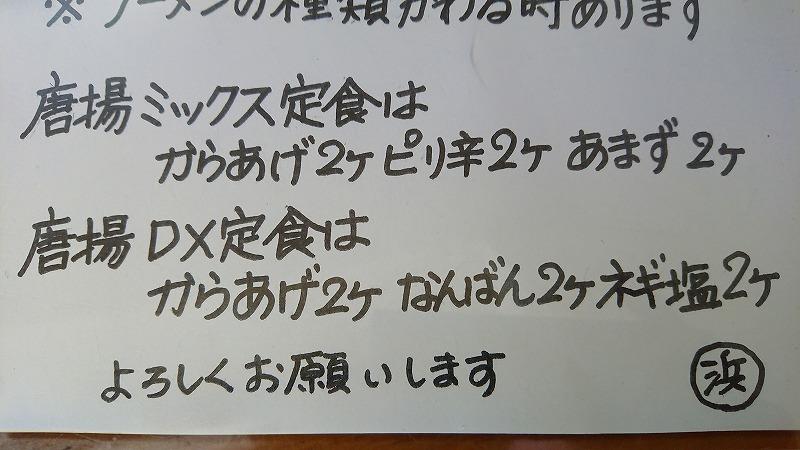 ※ ラーメンの種類かわる時あります
唐揚ミックス定食は
からあげ2ヶ ピリ辛2ヶ あまず2ヶ
唐揚DX定食は
からあげ2ヶ なんばん2ヶ ネギ塩2ヶ
よろしくお願いします
浜